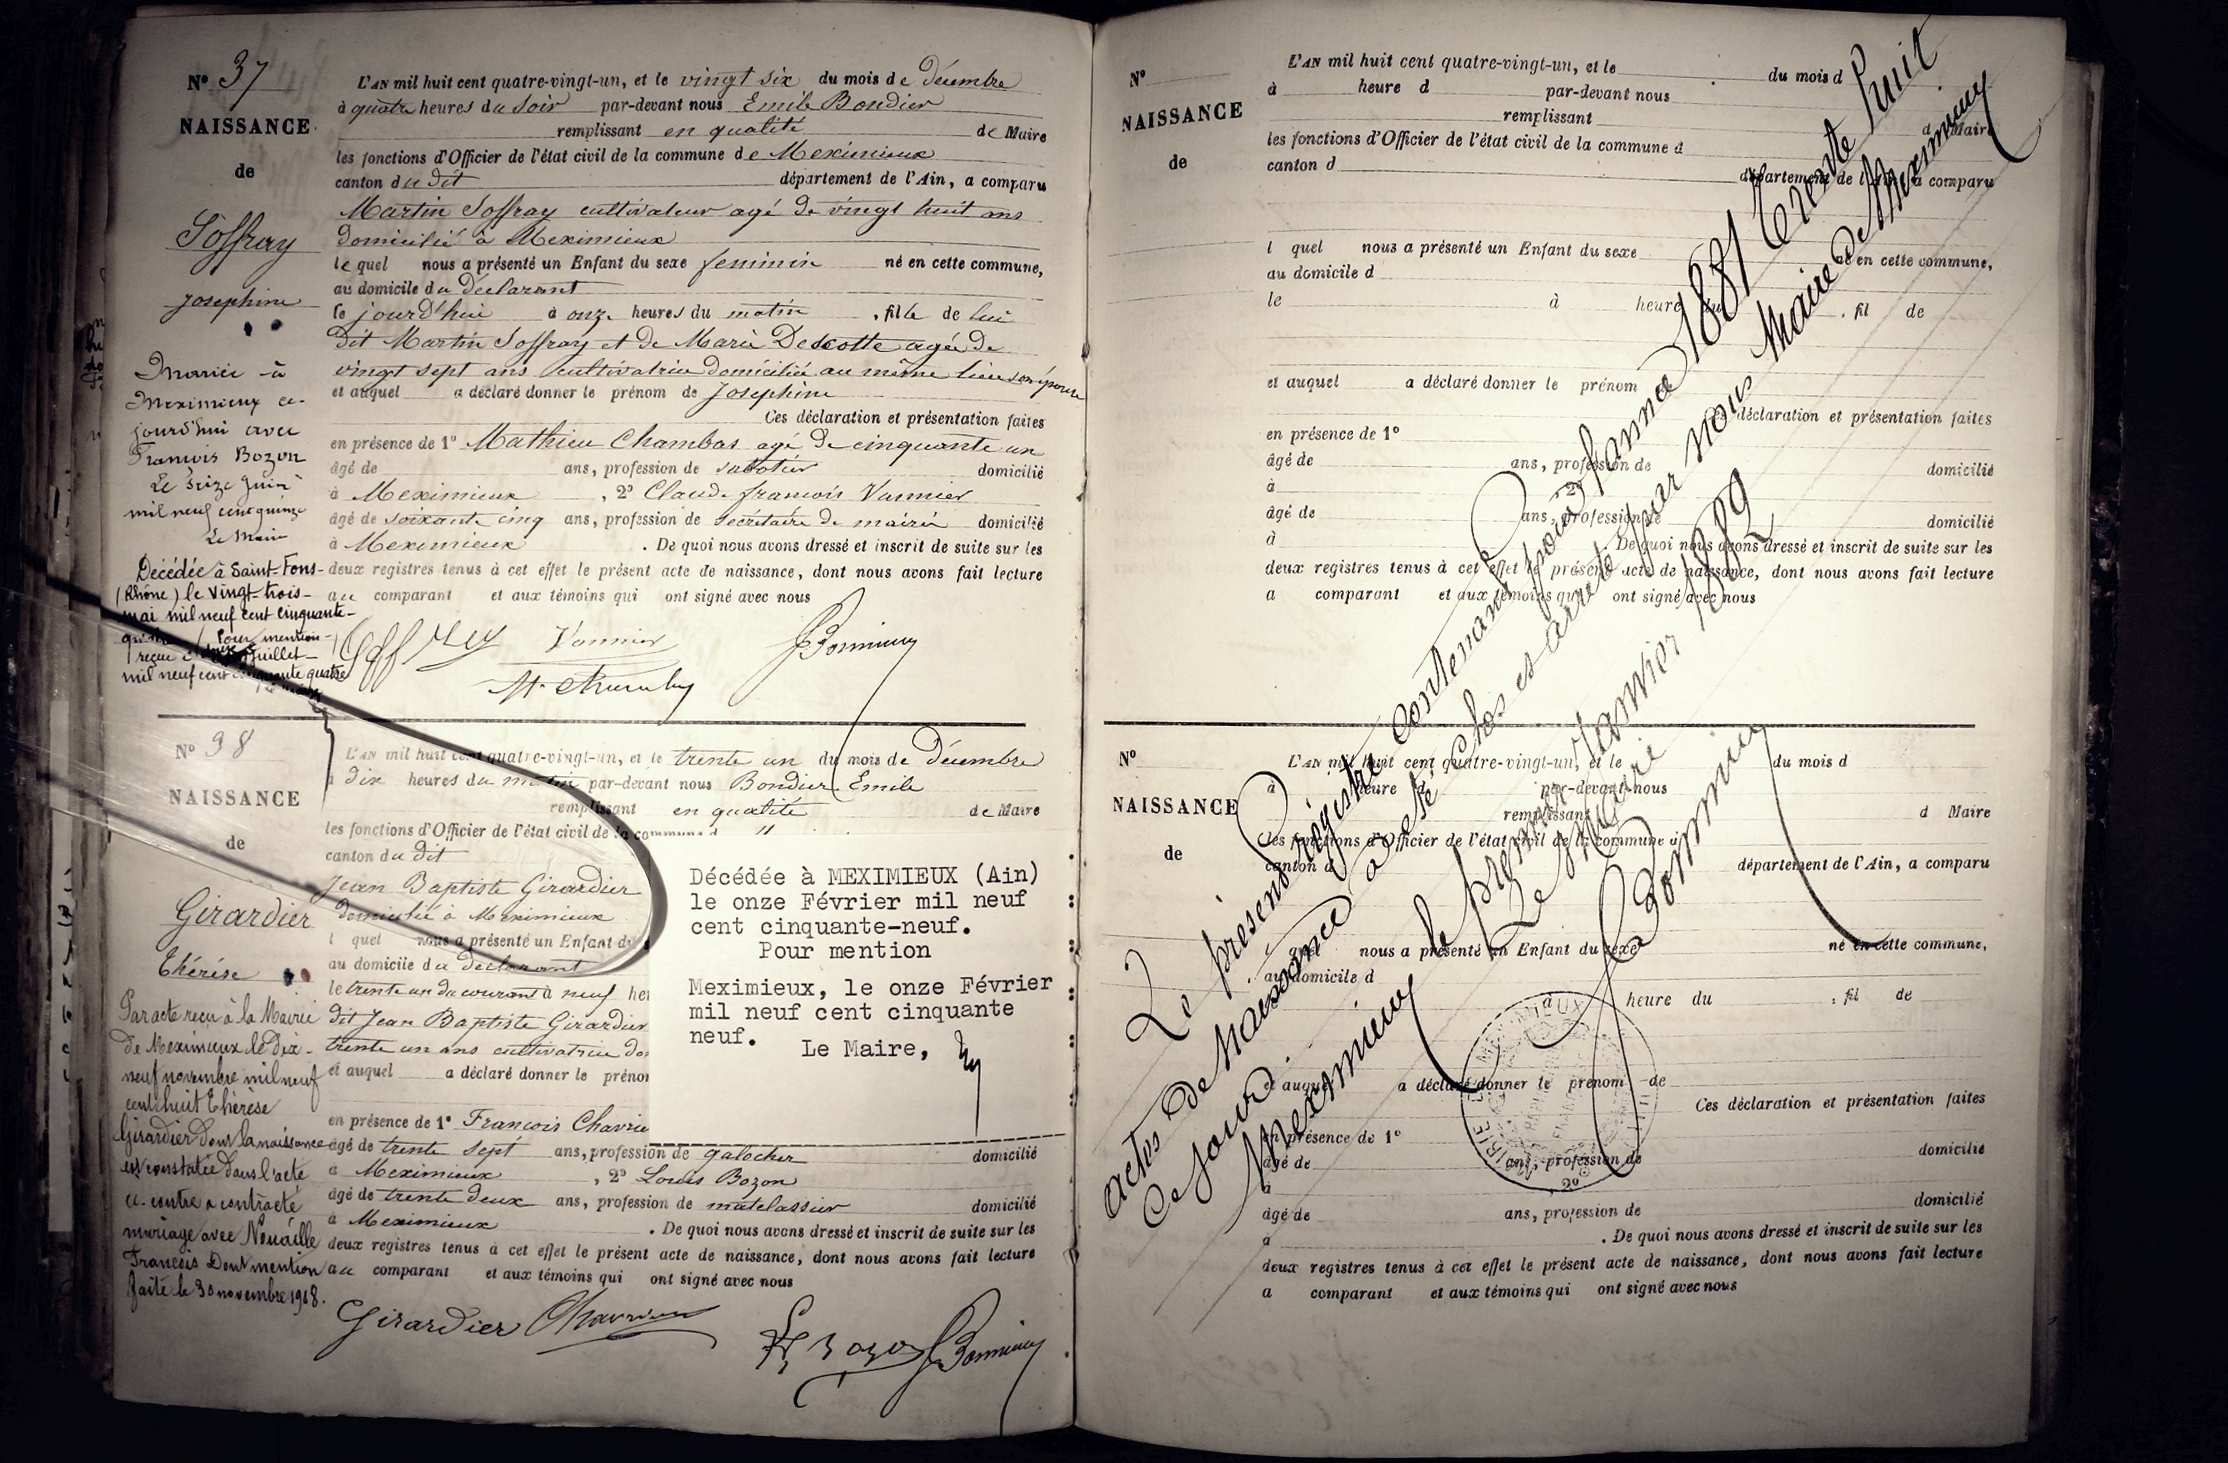 N° 37
NAISSANCE
de
Soffray
Josephine
Mariée à
Meximieux ce-
jourd'hui avec
François Bozon
Le seize Juin
mil neuf cent quinze
Le Maire
Décédée à Saint-Fons-
(Rhône) le Vingt-trois-
mai mil neuf cent cinquante-
Pour mention-
reçue Juillet-
mil neuf cent cinquante quatre
L'AN mil huit cent quatre-vingt-un, et le vingt six du mois de décembre
à quatre heures du soir par-devant nous Emile Bondier
remplissant en qualité de Maire
les fonctions d'Officier de l'état civil de la commune de Meximieux
canton du dit département de l'Ain, a comparu
Martin Soffray cultivateur agé de vingt huit ans
domicilié à Meximieux
lequel nous a présenté un Enfant du sexe feminin né en cette commune,
au domicile du déclarant
le jourd'hui à onze heures du matin, fille de lui
dit Martin Soffray et de Marie Descotte agée de
vingt sept ans cultivatrice domiciliée au même lieu son épouse
et auquel a déclaré donner le prénom de Josephine
Ces déclaration et présentation faites
en présence de 1° Mathieu Chambas agé de cinquante un
âgé de ans, profession de sabotier domicilié
à Meximieux, 2° Claude françois Vannier
âgé de soixante cinq ans, profession de secrétaire de mairie domicilié
à Meximieux. De quoi nous avons dressé et inscrit de suite sur les
deux registres tenus à cet effet le présent acte de naissance, dont nous avons fait lecture
au comparant et aux témoins qui ont signé avec nous
Vannier
N° 38
NAISSANCE
de
Girardier
Thérése
Par acte reçu à la Mairie
de Meximieux le dix-
neuf novembre mil neuf
cent huit Thérèse
Girardier dont la naissance
est constatée dans l'acte
ci-contre a contracté
mariage avec Nouaille
François Dont mention
faite le 30 novembre 1908.
L'AN mil huit cent quatre-vingt-un, et le trente un du mois de Décembre
à dix heures du matin par-devant nous Bondier Emile
remplissant en qualité de Maire
les fonctions d'Officier de l'état civil de la commune d "
canton du dit
Jean Baptiste Girardier
domicilié à Meximieux
l quel nous a présenté un Enfant du
au domicile du declarant
le trente un du courant à neuf heu
dit Jean Baptiste Girardier
trente un ans cultivatrice do
et auquel a déclaré donner le prénom
en présence de 1° François Chavrie
âgé de trente sept ans, profession de galocher domicilié
à Meximieux, 2° Louis Bozon
âgé de trente deux ans, profession de matelassier domicilié
à Meximieux. De quoi nous avons dressé et inscrit de suite sur les
deux registres tenus à cet effet le présent acte de naissance, dont nous avons fait lecture
au comparant et aux témoins qui ont signé avec nous
Girardier
Décédée à MEXIMIEUX (Ain)
le onze Février mil neuf
cent cinquante-neuf.
Pour mention
Meximieux, le onze Février
mil neuf cent cinquante
neuf.
Le Maire,
N°
NAISSANCE
de
L'AN mil huit cent quatre-vingt-un, et le du mois d
à heure d par-devant nous
remplissant d Maire
les fonctions d'Officier de l'état civil de la commune d
canton d département de l'Ain, a comparu
l quel nous a présenté un Enfant du sexe né en cette commune,
au domicile d
le à heure du, fil de
et auquel a déclaré donner le prénom de
déclaration et présentation faites
en présence de 1°
âgé de ans, profession de domicilié
à, 2°
âgé de ans, profession de domicilié
à. De quoi nous avons dressé et inscrit de suite sur les
deux registres tenus à cet effet le présent acte de naissance, dont nous avons fait lecture
a comparant et aux témoins qui ont signé avec nous
N°
NAISSANCE
de
L'AN mil huit cent quatre-vingt-un, et le du mois d
à heure d par-devant nous
remplissant d Maire
les fonctions d'Officier de l'état civil de la commune d
canton d département de l'Ain, a comparu
l quel nous a présenté un Enfant du sexe né en cette commune,
au domicile d
à heure du, fil de
et auquel a déclaré donner le prénom de
Ces déclaration et présentation faites
en présence de 1°
âgé de ans, profession de domicilié
à, 2°
âgé de ans, profession de domicilié
à. De quoi nous avons dressé et inscrit de suite sur les
deux registres tenus à cet effet le présent acte de naissance, dont nous avons fait lecture
a comparant et aux témoins qui ont signé avec nous
Le présent régistre contenant pour l'année 1881 trente huit
actes de Naissance a été clos et arrêté par nous Maire de Meximieux
ce jourd'hui
Meximieux le premier Janvier 1882
Le Maire